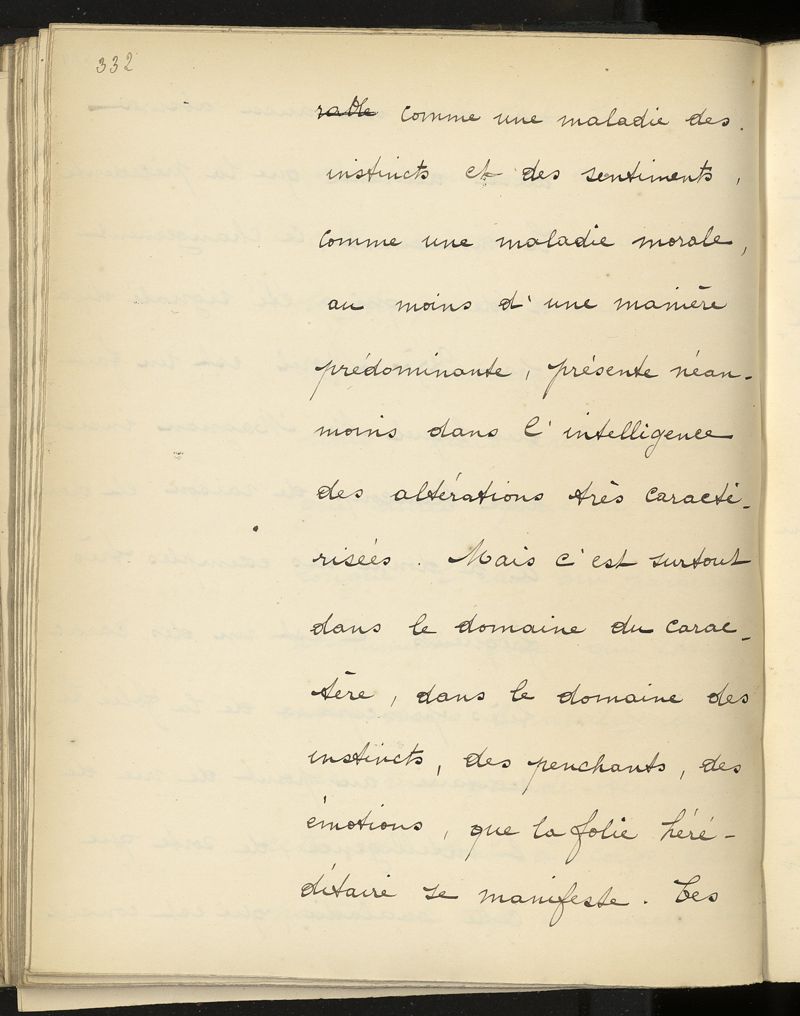 332
rable comme une maladie des
instincts et des sentiments,
comme une maladie morale,
au moins d'une manière
prédominante, présente néan-
moins dans l'intelligence
des altérations très caracté-
risées. Mais c'est surtout
dans le domaine du carac-
tère, dans le domaine des
instincts, des penchants, des
émotions, que la folie héré-
ditaire se manifeste. Les